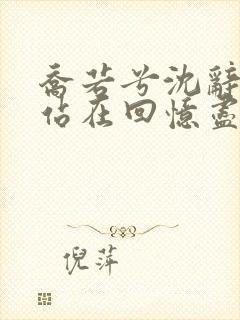 喬若兮沈辭
佔在回憶盡
倪萍